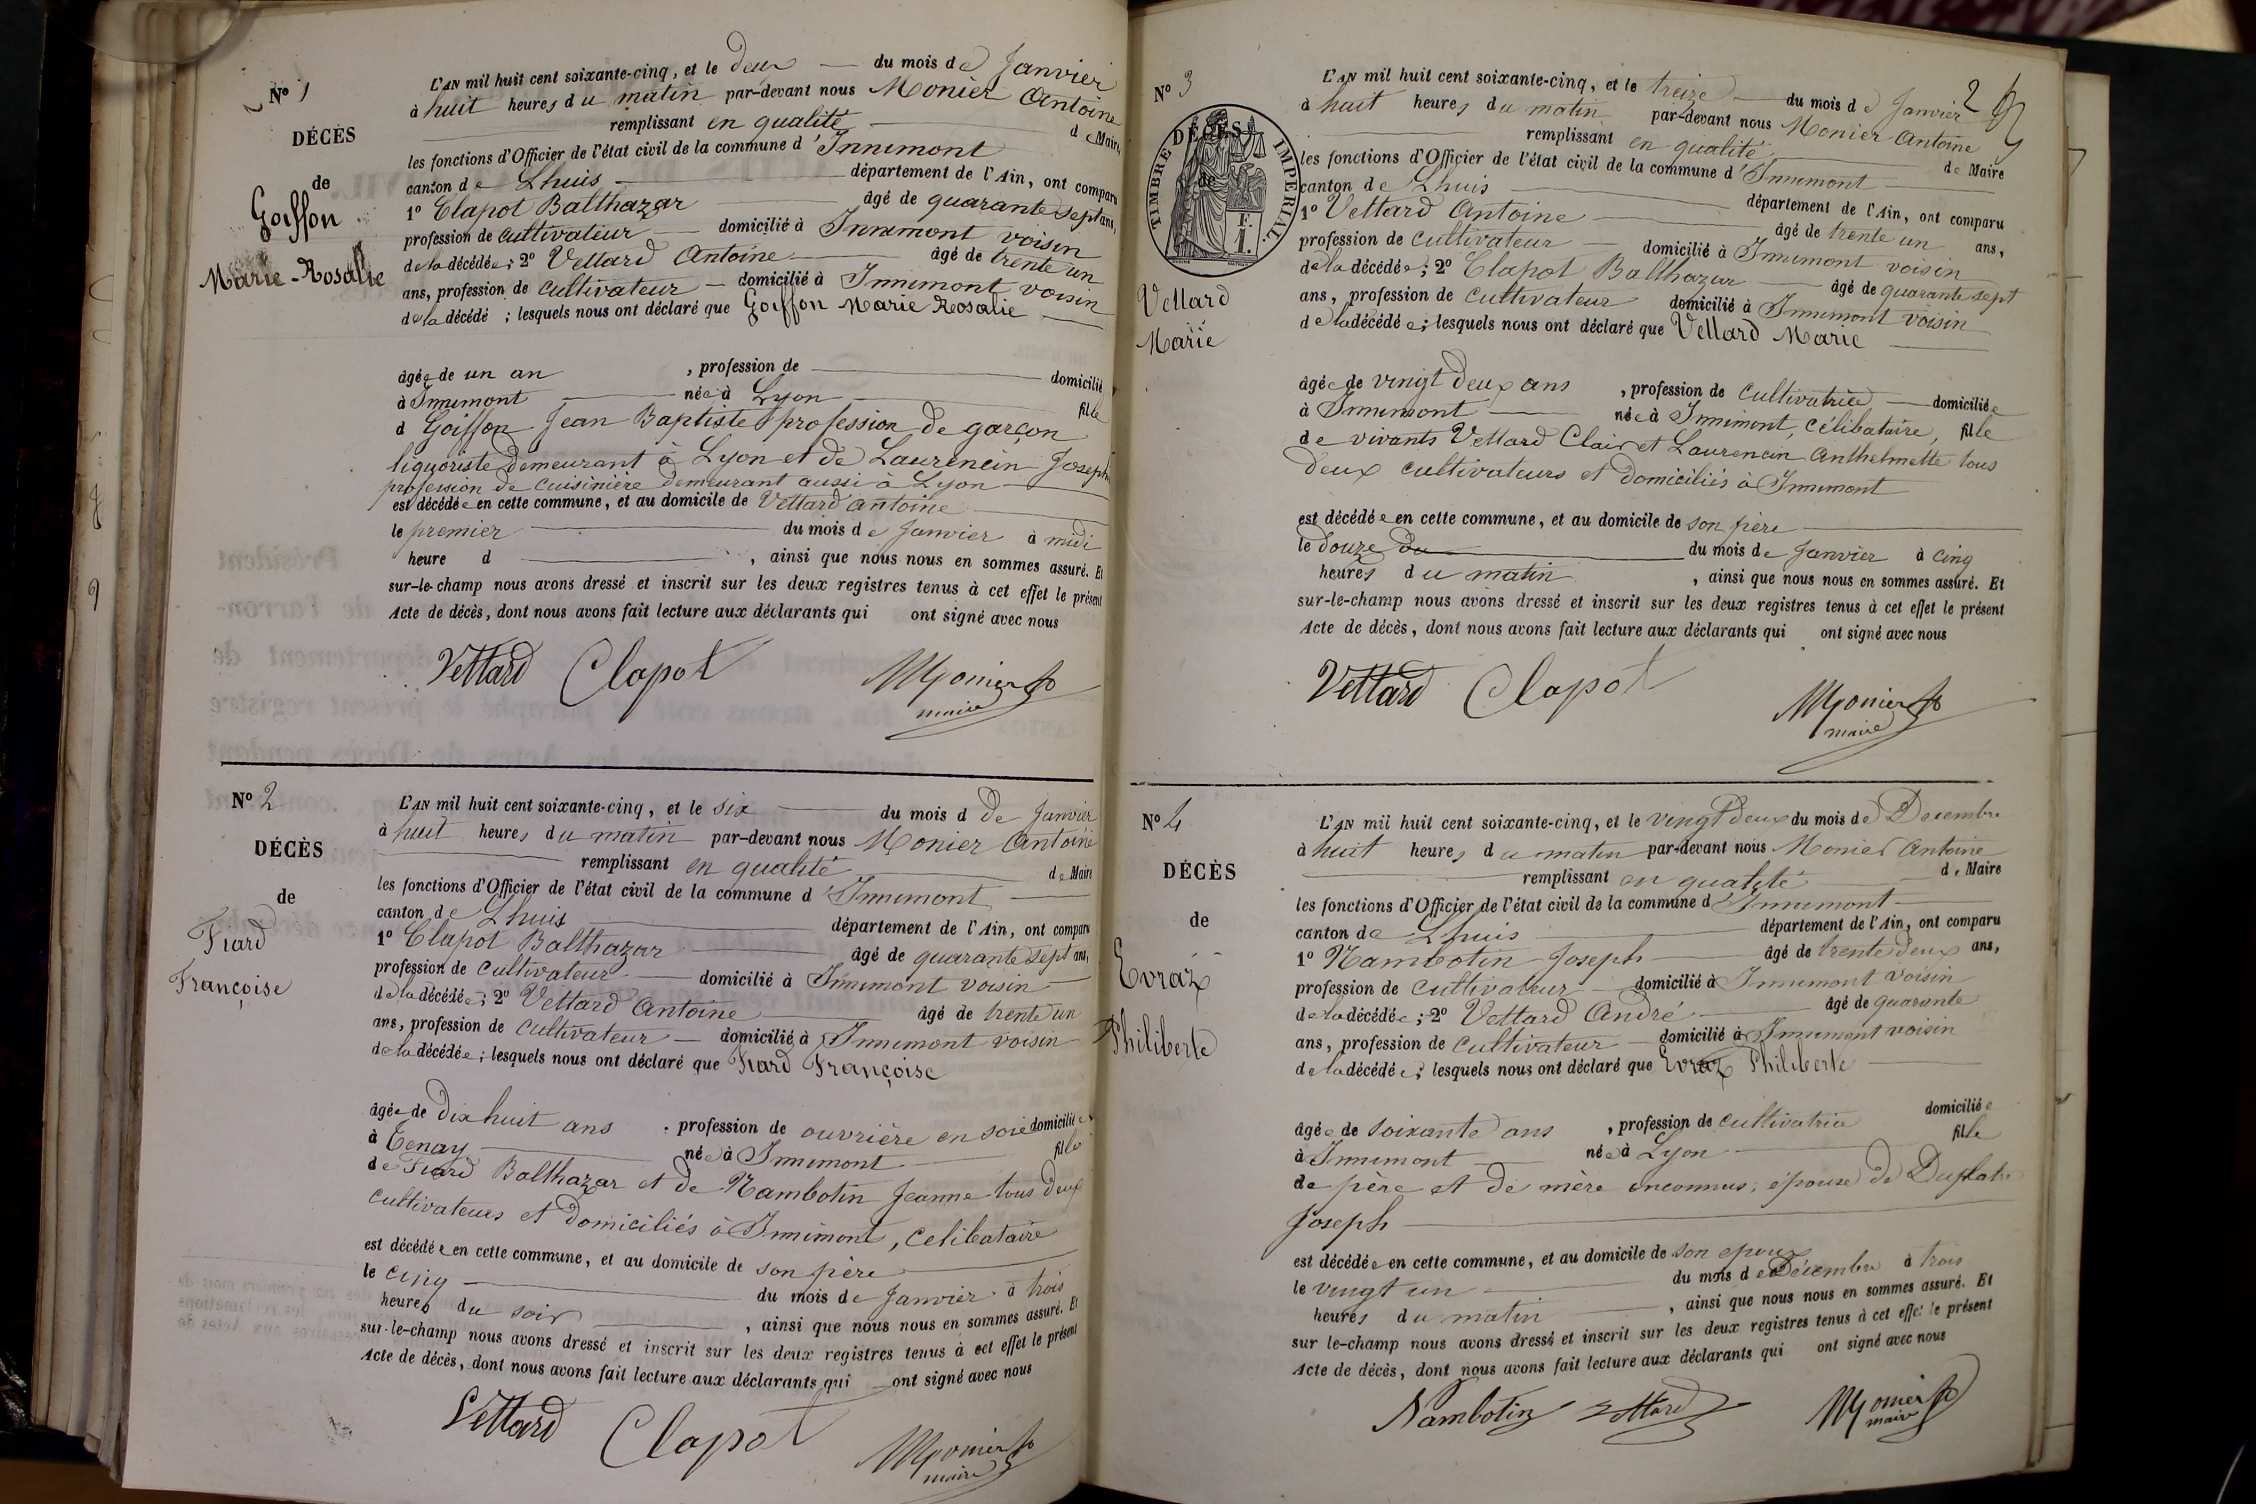 Nº 1
DÉCÈS
de
Goiffon
Marie-Rosalie
L'AN mil huit cent soixante-cinq, et le deux du mois de Janvier
à huit heures du matin par-devant nous Monier Antoine
remplissant en qualité de Maire
les fonctions d'Officier de l'état civil de la commune d'Innimont
canton de Lhuis département de l'Ain, ont comparu
1º Clapot Balthazar âgé de quarante sept ans,
profession de cultivateur domicilié à Innimont voisin
de la décédée; 2º Vettard Antoine âgé de trente un
ans, profession de cultivateur domicilié à Innimont voisin
de la décédé ; lesquels nous ont déclaré que Goiffon Marie Rosalie
âgée de un an , profession de domicilié
à Innimont née à Lyon fille
d Goiffon Jean Baptiste profession de garçon
liquoriste demeurant à Lyon et de Laurencin Joseph
profession de cuisinière demeurant aussi à Lyon
est décédée en cette commune, et au domicile de Vettard antoine
le premier du mois de Janvier à midi
heure d , ainsi que nous nous en sommes assuré. Et
sur-le-champ nous avons dressé et inscrit sur les deux registres tenus à cet effet le présent
Acte de décès, dont nous avons fait lecture aux déclarants qui ont signé avec nous
Vettard Clapot Monier
maire
Nº 2
DÉCÈS
de
Fiard
Françoise
L'AN mil huit cent soixante-cinq, et le six du mois d de Janvier
à huit heures du matin par-devant nous Monier Antoine
remplissant en qualité de Maire
les fonctions d'Officier de l'état civil de la commune d'Innimont
canton de Lhuis département de l'Ain, ont comparu
1º Clapot Balthazar âgé de quarante sept ans,
profession de cultivateur domicilié à Innimont voisin
de la décédée; 2º Vettard Antoine âgé de trente un
ans, profession de cultivateur domicilié à Innimont voisin
de la décédée; lesquels nous ont déclaré que Fiard Françoise
âgée de dix huit ans , profession de ouvrière en soie domiciliée
à Tenay née à Innimont fille
de Fiard Balthazar et de Nambotin Jeanne tous deux
cultivateurs et domiciliés à Innimont, celibataire
est décédée en cette commune, et au domicile de son père
le cinq du mois de Janvier à trois
heures du soir , ainsi que nous nous en sommes assuré. Et
sur-le-champ nous avons dressé et inscrit sur les deux registres tenus à cet effet le présent
Acte de décès, dont nous avons fait lecture aux déclarants qui ont signé avec nous
Vettard Clapot Monier
maire
2
Nº 3
DÉCÈS
de
TIMBRE IMPERIAL.
Vettard
Marie
L'AN mil huit cent soixante-cinq, et le treize du mois de Janvier
à huit heures du matin par-devant nous Monier Antoine
remplissant en qualité de Maire
les fonctions d'Officier de l'état civil de la commune d'Innimont
canton de Lhuis département de l'Ain, ont comparu
1º Vettard Antoine âgé de trente un ans,
profession de cultivateur domicilié à Innimont voisin
de la décédée; 2º Clapot Balthazar âgé de quarante sept
ans, profession de cultivateur domicilié à Innimont voisin
de la décédée; lesquels nous ont déclaré que Vettard Marie
âgée de vingt deux ans , profession de cultivatrice domiciliée
à Innimont née à Innimont, célibataire, fille
de vivants Vettard Clair et Laurencin Anthelmette tous
deux cultivateurs et domiciliés à Innimont
est décédée en cette commune, et au domicile de son père
le douze du du mois de Janvier à cinq
heures du matin , ainsi que nous nous en sommes assuré. Et
sur-le-champ nous avons dressé et inscrit sur les deux registres tenus à cet effet le présent
Acte de décès, dont nous avons fait lecture aux déclarants qui ont signé avec nous
Vettard Clapot Monier
maire
Nº 4
DÉCÈS
de
Evraz
Philiberte
L'AN mil huit cent soixante-cinq, et le vingt deux du mois de Decembre
à huit heures du matin par-devant nous Monier Antoine
remplissant en qualité de Maire
les fonctions d'Officier de l'état civil de la commune d'Innimont
canton de Lhuis département de l'Ain, ont comparu
1º Nambotin Joseph âgé de trente deux ans,
profession de cultivateur domicilié à Innimont voisin
de la décédée; 2º Vettard André âgé de quarante
ans, profession de cultivateur domicilié à Innimont voisin
de la décédée; lesquels nous ont déclaré que Evraz Philiberte
âgée de soixante ans , profession de cultivatrice domiciliée
à Innimont née à Lyon fille
de père et de mère inconnus, épouse de Duplatre
Joseph
est décédée en cette commune, et au domicile de son epoux
le vingt un du mois de Décembre à trois
heures du matin , ainsi que nous nous en sommes assuré. Et
sur le-champ nous avons dressé et inscrit sur les deux registres tenus à cet effet le présent
Acte de décès, dont nous avons fait lecture aux déclarants qui ont signé avec nous
Nambotin Vettard Monier
maire